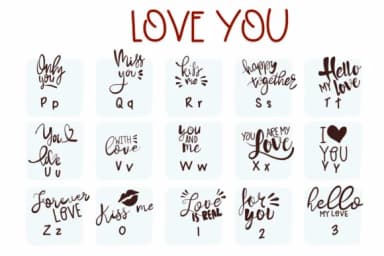 LOVE YOU
Only
you
P p
Miss
you
Q q
kiss
me
R r
happy
together
S s
Hello
MY LOVE
T t
You
love
U u
WITH
love
V v
you
AND
ME
W w
YOU ARE MY
Love
X x
I ♥
YOU
Y y
Forever
LOVE
Z z
Kiss me
0
Love
IS REAL
1
for
you
2
hello
MY LOVE
3